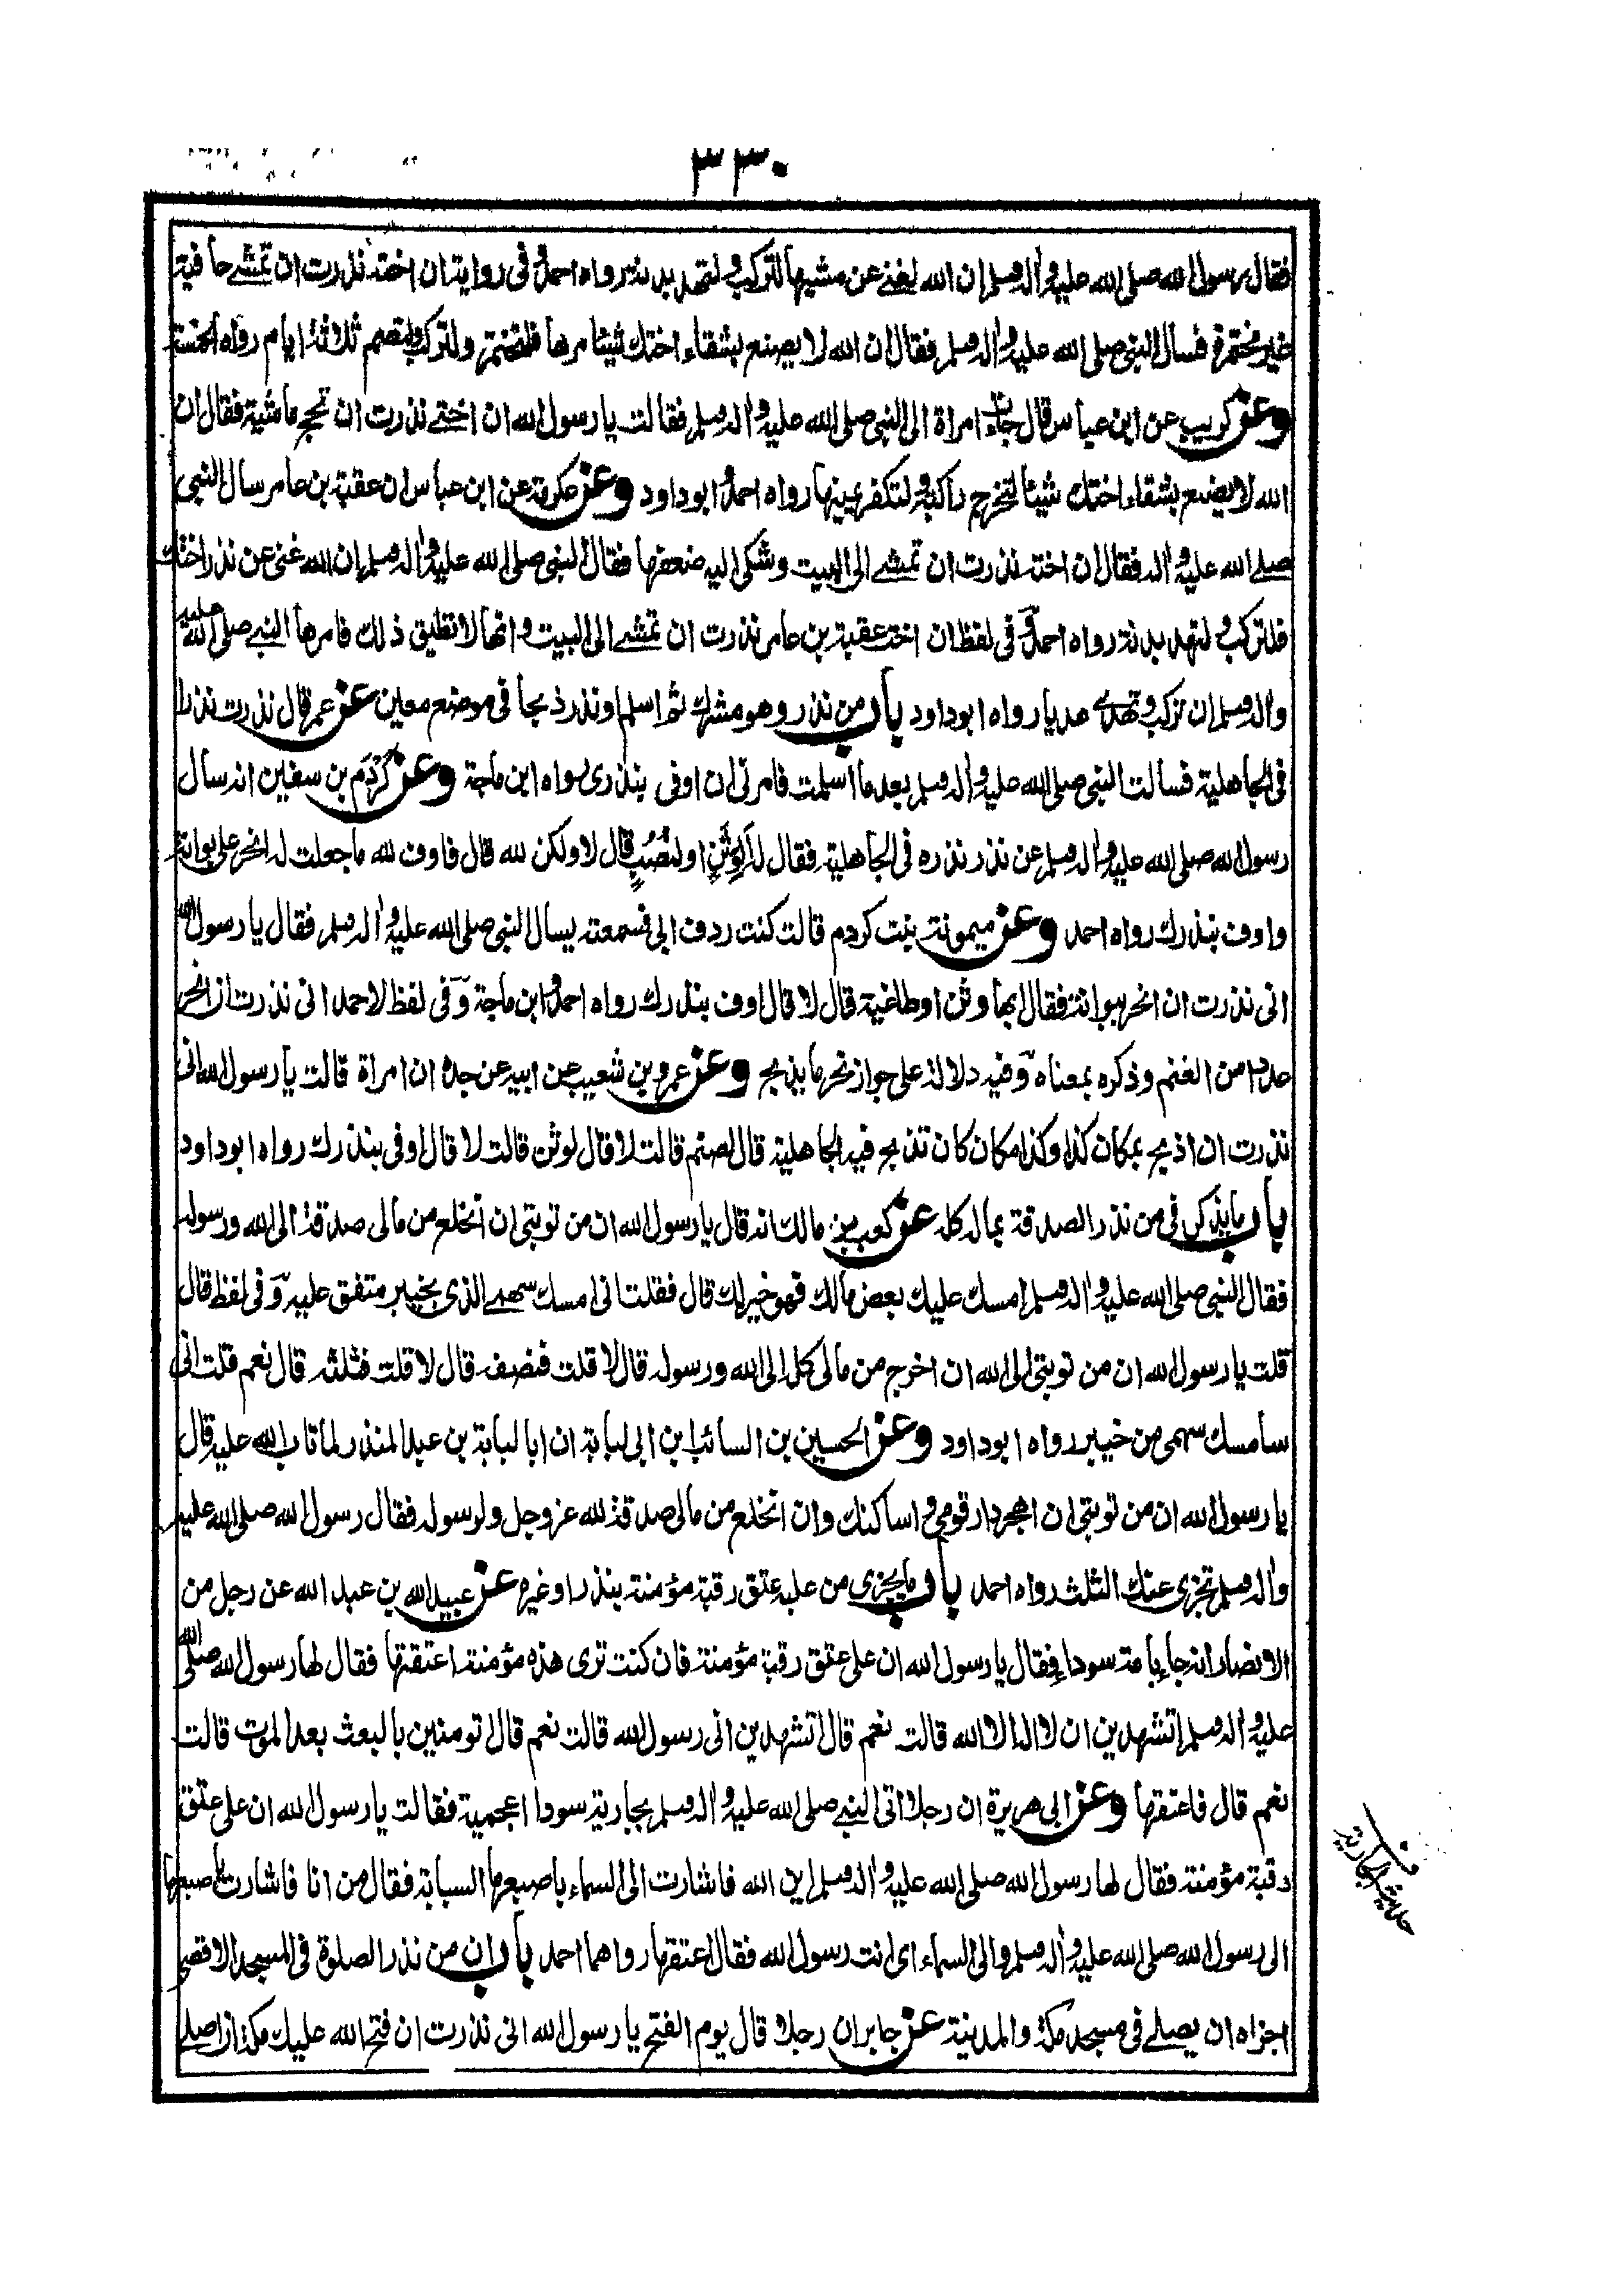 ٣٣٠
فقال رسول الله صلى الله عليه واله وسلم ان الله لغنى عن مشيها لتركب ولتهد بدنة رواه احمد وفى رواية ان اخته نذرت ان تمشے حافية
غير مختمرة فسأل النبى صلى الله عليه واله وسلم فقال ان الله لا يصنع بشقاء اختك شيئا مرها فلتختمر ولتركب ولتصم ثلاثة ايام رواه الخمسة
وعن كريب عن ابن عباس قال جاءت امراة الى النبى صلى الله عليه واله وسلم فقالت يا رسول الله ان اختے نذرت ان تحج ماشية فقال ان
الله لا يصنع بشقاء اختك شيئا لتخرج راكبة ولتكفر يمينها رواه احمد وابو داود وعن عكرمة عن ابن عباس ان عقبة بن عامر سال النبى
صلے الله عليه واله فقال ان اخته نذرت ان تمشے الى البيت وشكى اليه ضعفها فقال النبى صلى الله عليه واله وسلم ان الله غنى عن نذر اختك
فلتركب ولتهد بدنة رواه احمد وفى لفظ ان اخت عقبة بن عامر نذرت ان تمشے الى البيت وانها لا تطيق ذلك فامرها النبے صلى الله عليه
واله وسلم ان تركب وتهدے هديا رواه ابو داود باب من نذر وهو مشرك ثم اسلم او نذر ذبحا فى موضع معين عن عمر قال نذرت نذرا
فى الجاهلية فسالت النبى صلى الله عليه واله وسلم بعد ما اسلمت فامرنى ان اوفى بنذرى رواه ابن ماجة وعن كَرْدَم بن سفين انه سال
رسول الله صلى الله عليه واله وسلم عن نذر نذره فى الجاهلية فقال له اَلِوَثَنٍ او لنُصُبٍ قال لا ولكن لله قال فاوف لله ما جعلت له انحر على بوانة
واوف بنذرك رواه احمد وعن ميمونة بنت كردم قالت كنت ردف ابى فسمعته يسال النبى صلى الله عليه واله وسلم فقال يا رسول الله
انى نذرت ان انحر ببوانة فقال ابها وثن او طاغية قال لا قال اوف بنذرك رواه احمد وابن ماجة وفى لفظ لاحمد انى نذرت ان انحر
عددا من الغنم وذكره بمعناه وفيه دلالة على جواز نحر ما يذبح وعن عمرو بن شعيب عن ابيه عن جده ان امراة قالت يا رسول الله انى
نذرت ان اذبح بمكان كذا وكذا مكان كان تذبح فيه الجاهلية قال لصنم قالت لا قال لوثن قالت لا قال اوفى بنذرك رواه ابو داود
باب ما يذكر فى من نذر الصدقة بماله كله عن كعب بن مالك انه قال يا رسول الله ان من توبتى ان انخلع من مالى صدقة الى الله ورسوله
فقال النبى صلى الله عليه واله وسلم امسك عليك بعض مالك فهو خير لك قال فقلت انى امسك سهمے الذى بخيبر متفق عليه وفى لفظ قال
قلت يا رسول الله ان من توبتى الى الله ان اخرج من مالى كله الى الله ورسوله قال لا قلت فنصفه قال لا قلت فثلثه قال نعم قلت انى
سامسك سهمى من خيبر رواه ابو داود وعن الحسين بن السائب بن ابى لبابة ان ابا لبابة بن عبد المنذر لما تاب الله عليه قال
يا رسول الله ان من توبتى ان اهجر دار قومى واساكنك وان انخلع من مالى صدقة لله عز وجل ولرسوله فقال رسول الله صلى الله عليه
واله وسلم تجزى عنك الثلث رواه احمد باب ما يجزى من عليه عتق رقبة مؤمنة بنذر او غيره عن عبيد الله بن عبد الله عن رجل من
الانصار انه جاء بامة سوداء فقال يا رسول الله ان على عتق رقبة مؤمنة فان كنت ترى هذه مؤمنة اعتقتها فقال لها رسول الله صلى الله
عليه واله وسلم اتشهدين ان لا اله الا الله قالت نعم قال اتشهدين انى رسول الله قالت نعم قال تومنين بالبعث بعد الموت قالت
نعم قال فاعتقها وعن ابى هريرة ان رجلا اتى النبے صلى الله عليه واله وسلم بجارية سوداء اعجمية فقالت يا رسول الله ان على عتق
رقبة مؤمنة فقال لها رسول الله صلى الله عليه واله وسلم اين الله فاشارت الى السماء باصبعها السبابة فقال من انا فاشارت باصبعها
الى رسول الله صلى الله عليه واله وسلم والى السماء اى انت رسول الله فقال اعتقها رواهما احمد باب ان من نذر الصلوة فى المسجد الاقصى
اجزاه ان يصلے فى مسجد مكة والمدينة عن جابر ان رجلا قال يوم الفتح يا رسول الله انى نذرت ان فتح الله عليك مكة ان اصلے
حديث الجارية